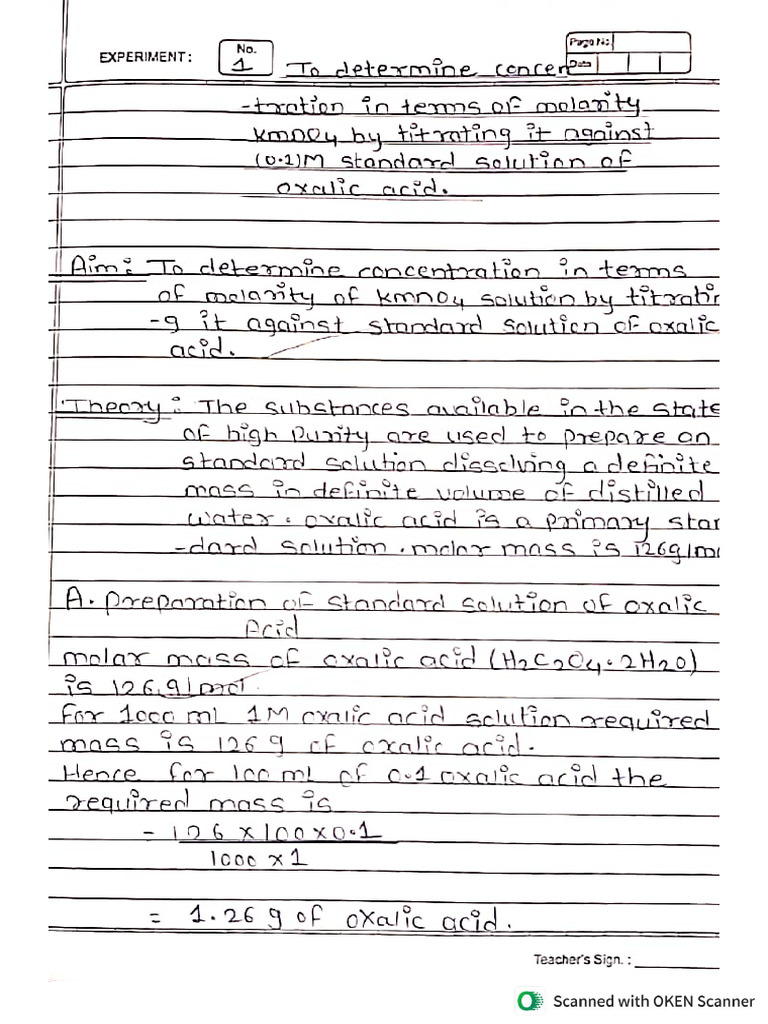 EXPERIMENT: No. 1 Page No:
Date
To determine concen
-tration in terms of molarity
kmnO4 by titrating it against
(0.1)M standard solution of
oxalic acid.
Aim: To determine concentration in terms
of molarity of kmnO4 solution by titratin
-g it against standard solution of oxalic
acid.
Theory: The substances available in the state
of high purity are used to prepare an
standard solution dissolving a definite
mass in definite volume of distilled
water. oxalic acid is a primary stan
-dard solution. molar mass is 126g/mo
A. preparation of standard solution of oxalic
Acid
molar mass of oxalic acid (H2C2O4.2H2O)
is 126.g/mol.
for 1000 mL 1M oxalic acid solution required
mass is 126 g of oxalic acid.
Hence for 100 mL of 0.1 oxalic acid the
required mass is
= 126 x 100 x 0.1
1000 x 1
= 1.26 g of oxalic acid.
Teacher's Sign. :
Scanned with OKEN Scanner